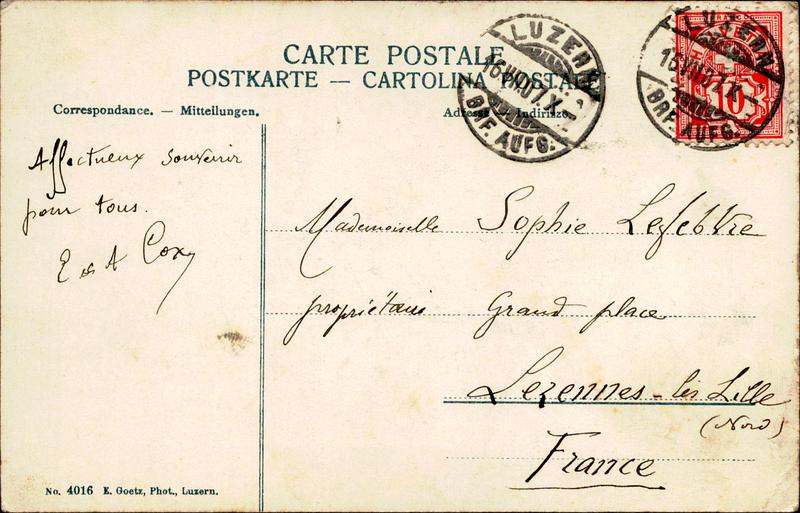 CARTE POSTALE
POSTKARTE — CARTOLINA POSTALE
Correspondance. — Mitteilungen.
Adresse Indirizzo.
LUZERN
16.VII.07.X
BRF. AUFG.
LUZERN
16.VII.07.X
BRF. AUFG.
10
Affectueux souvenir
pour tous.
E & A Cox
Mademoiselle Sophie Lefebvre
propriétaire Grand place
Lezennes-lès Lille
(Nord)
France
No. 4016 E. Goetz, Phot., Luzern.